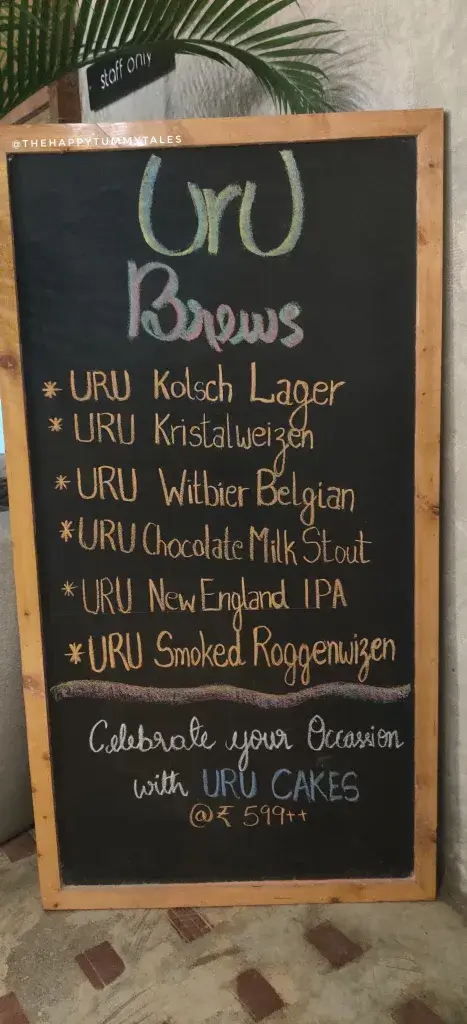 staff only
@THEHAPPYTUMMYTALES
UrU
Brews
* URU Kolsch Lager
* URU Kristalweizen
* URU Witbier Belgian
* URU Chocolate Milk Stout
* URU New England IPA
* URU Smoked Roggenwizen
Celebrate your Occassion
with URU CAKES
@₹ 599++